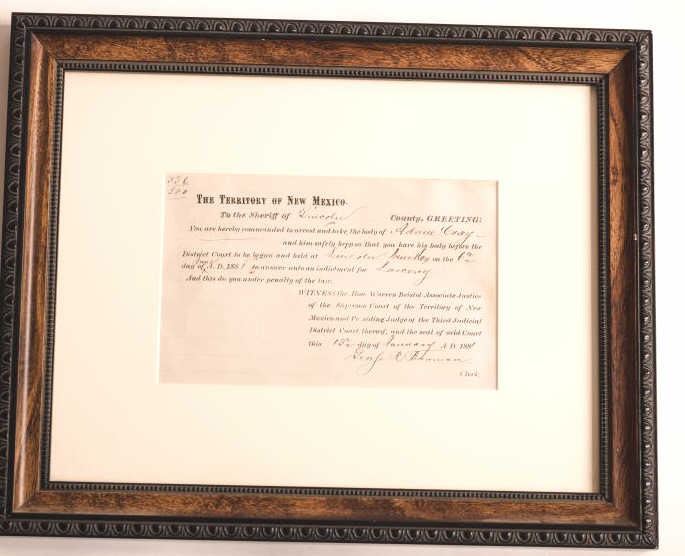 336
500
THE TERRITORY OF NEW MEXICO.
To the Sheriff of Lincoln County, GREETING:
You are hereby commanded to arrest and take the body of
and him safely keep so that you have his body before the
District Court to be begun and held at Lincoln on the
day of A. D. 188 to answer unto an indictment for Larceny
And this do you under penalty of the law.
WITNESS the Hon. Warren Bristol Associate Justice
of the Supreme Court of the Territory of New
Mexico and Presiding Judge of the Third Judicial
District Court thereof, and the seal of said Court
this day of January A. D. 188
Clerk.